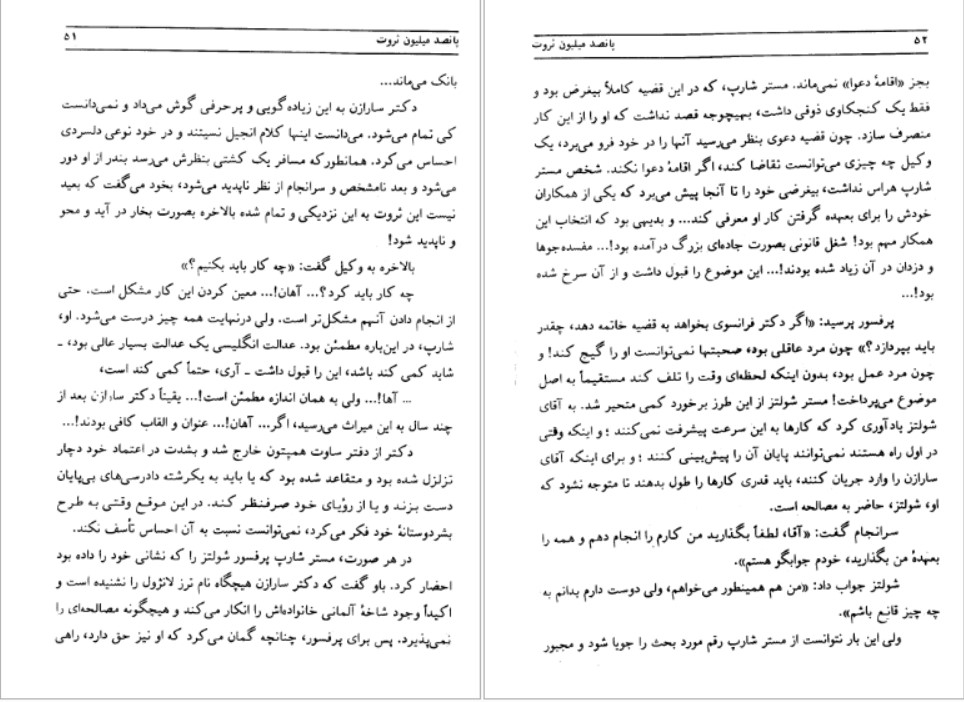 پانصد میلیون ثروت ۵۱
بانک می‌ماند...
دکتر سارازن به این زیاده‌گویی و پرحرفی گوش می‌داد و نمی‌دانست
کی تمام می‌شود. می‌دانست اینها کلام انجیل نسیتند و در خود نوعی دلسردی
احساس می‌کرد. همانطورکه مسافر یک کشتی بنظرش می‌رسد بندر از او دور
می‌شود و بعد نامشخص و سرانجام از نظر ناپدید می‌شود، بخود می‌گفت که بعید
نیست این ثروت به این نزدیکی و تمام شده بالاخره بصورت بخار در آید و محو
و ناپدید شود!
بالاخره به وکیل گفت: «چه کار باید بکنیم؟»
چه کار باید کرد؟... آهان!... معین کردن این کار مشکل است. حتی
از انجام دادن آنهم مشکل‌تر است. ولی درنهایت همه چیز درست می‌شود. او،
شارپ، در این‌باره مطمئن بود. عدالت انگلیسی یک عدالت بسیار عالی بود، ـ
شاید کمی کند باشد، این را قبول داشت ـ آری، حتماً کمی کند است،
... آها!... ولی به همان اندازه مطمئن است!... یقیناً دکتر سارازن بعد از
چند سال به این میراث می‌رسید، اگر... آهان!... عنوان و القاب کافی بودند!...
دکتر از دفتر ساوت همپتون خارج شد و بشدت در اعتماد خود دچار
تزلزل شده بود و متقاعد شده بود که یا باید به یکرشته دادرسی‌های بی‌پایان
دست بزند و یا از رؤیای خود صرفنظر کند. در این موقع وقتی به طرح
بشردوستانهٔ خود فکر می‌کرد، نمی‌توانست نسبت به آن احساس تأسف نکند.
در هر صورت، مستر شارپ پرفسور شولتز را که نشانی خود را داده بود
احضار کرد. باو گفت که دکتر سارازن هیچگاه نام ترز لانژول را نشنیده است و
اکیداً وجود شاخهٔ آلمانی خانواده‌اش را انکار می‌کند و هیچگونه مصالحه‌ای را
نمی‌پذیرد. پس برای پرفسور، چنانچه گمان می‌کرد که او نیز حق دارد، راهی
پانصد میلیون ثروت ۵۲
بجز «اقامهٔ دعوا» نمی‌ماند. مستر شارپ، که در این قضیه کاملاً بیغرض بود و
فقط یک کنجکاوی ذوقی داشت، بهیچوجه قصد نداشت که او را از این کار
منصرف سازد. چون قضیه دعوی بنظر می‌رسید آنها را در خود فرو می‌برد، یک
وکیل چه چیزی می‌توانست تقاضا کند، اگر اقامهٔ دعوا نکند. شخص مستر
شارپ هراس نداشت، بیغرضی خود را تا آنجا پیش می‌برد که یکی از همکاران
خودش را برای بعهده گرفتن کار او معرفی کند... و بدیهی بود که انتخاب این
همکار مهم بود! شغل قانونی بصورت جاده‌ای بزرگ درآمده بود!... مفسده‌جوها
و دزدان در آن زیاد شده بودند!... این موضوع را قبول داشت و از آن سرخ شده
بود!...
پرفسور پرسید: «اگر دکتر فرانسوی بخواهد به قضیه خاتمه دهد، چقدر
باید بپردازد؟» چون مرد عاقلی بود، صحبتها نمی‌توانست او را گیج کند! و
چون مرد عمل بود، بدون اینکه لحظه‌ای وقت را تلف کند مستقیماً به اصل
موضوع می‌پرداخت! مستر شولتز از این طرز برخورد کمی متحیر شد. به آقای
شولتز یادآوری کرد که کارها به این سرعت پیشرفت نمی‌کنند ؛ و اینکه وقتی
در اول راه هستند نمی‌توانند پایان آن را پیش‌بینی کنند ؛ و برای اینکه آقای
سارازن را وارد جریان کنند، باید قدری کارها را طول بدهند تا متوجه نشود که
او، شولتز، حاضر به مصالحه است.
سرانجام گفت: «آقا، لطفاً بگذارید من کارم را انجام دهم و همه را
بعهدهٔ من بگذارید، خودم جوابگو هستم».
شولتز جواب داد: «من هم همینطور می‌خواهم، ولی دوست دارم بدانم به
چه چیز قانع باشم».
ولی این بار نتوانست از مستر شارپ رقم مورد بحث را جویا شود و مجبور